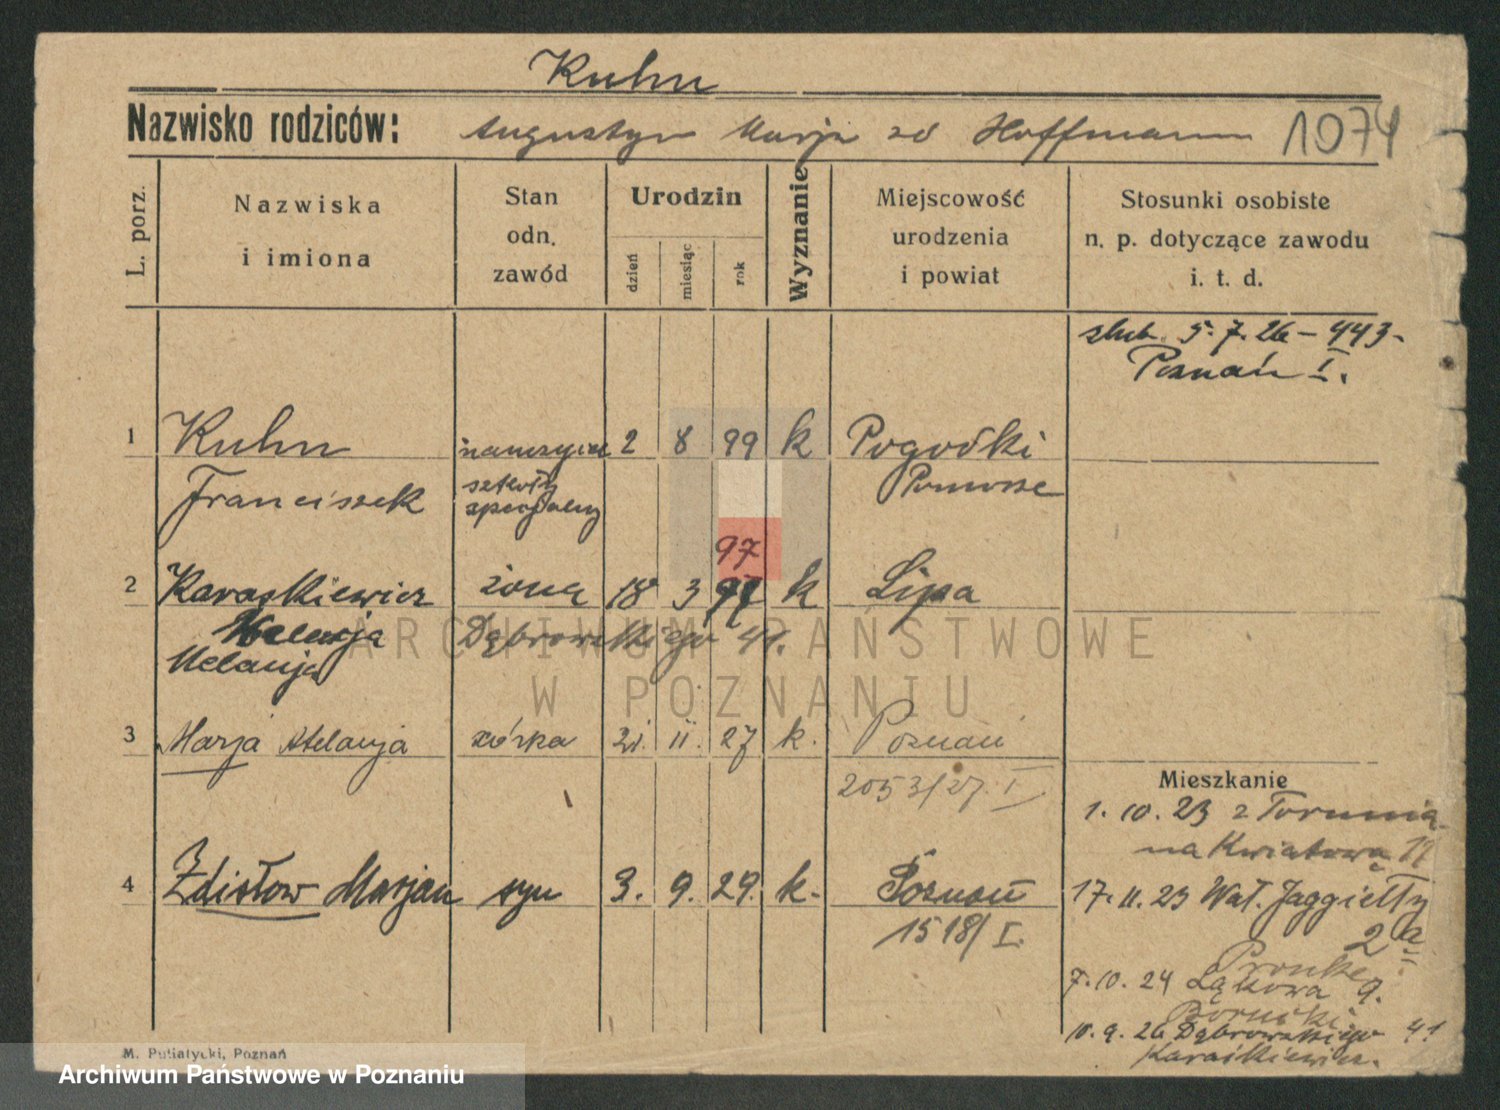 Kuhn
Nazwisko rodziców: Augustyn Marja zd Hoffmann 1074
L. porz.
Nazwiska
i imiona
Stan
odn.
zawód
Urodzin
dzień
miesiąc
rok
Wyznanie
Miejscowość
urodzenia
i powiat
Stosunki osobiste
n. p. dotyczące zawodu
i. t. d.
ślub. 5.7.26 – 443-
Poznań I.
1 Kuhn nauczyciel 2 8 99 k Pogódki
Franciszek szkoły Pomorze
specjalnej
97
2 Karaśkiewicz żona 18 3 97 k Lipa
Melanja Dąbrowskiego 41.
Melanja
3 Marja Melanja córka 21. 11. 27 k. Poznań
2053/27. I
Mieszkanie
1. 10. 23 z Torunia
na Kwiatową
4 Zdisław Marjan syn 3. 9. 29. k. Poznań
1518/I.
17. 11. 23 Wał. Jagiełły
2a
7. 10. 24 Łąkowa 9.
10. 9. 26 Dąbrowskiego 41
Karaśkiewicz.
M. Putiatycki, Poznań
ARCHIWUM PAŃSTWOWE
W POZNANIU
Archiwum Państwowe w Poznaniu